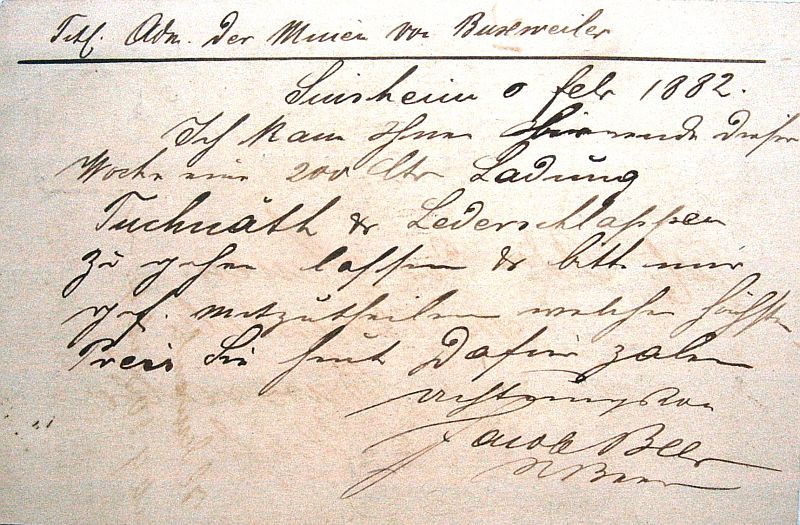 Titl. Adm. der Minen von Buxweiler
Sinsheim Febr 1882.
Ich kann Ihnen ende dieser
Woche eine 200 Ctr Ladung
Tuchnäth & Lederschlappen
zu gehen lassen & bitte mir
gef. mitzutheilen welchen höchsten
Preis Sie heut dafür zalen
Achtungsvoll
Jacob Beer